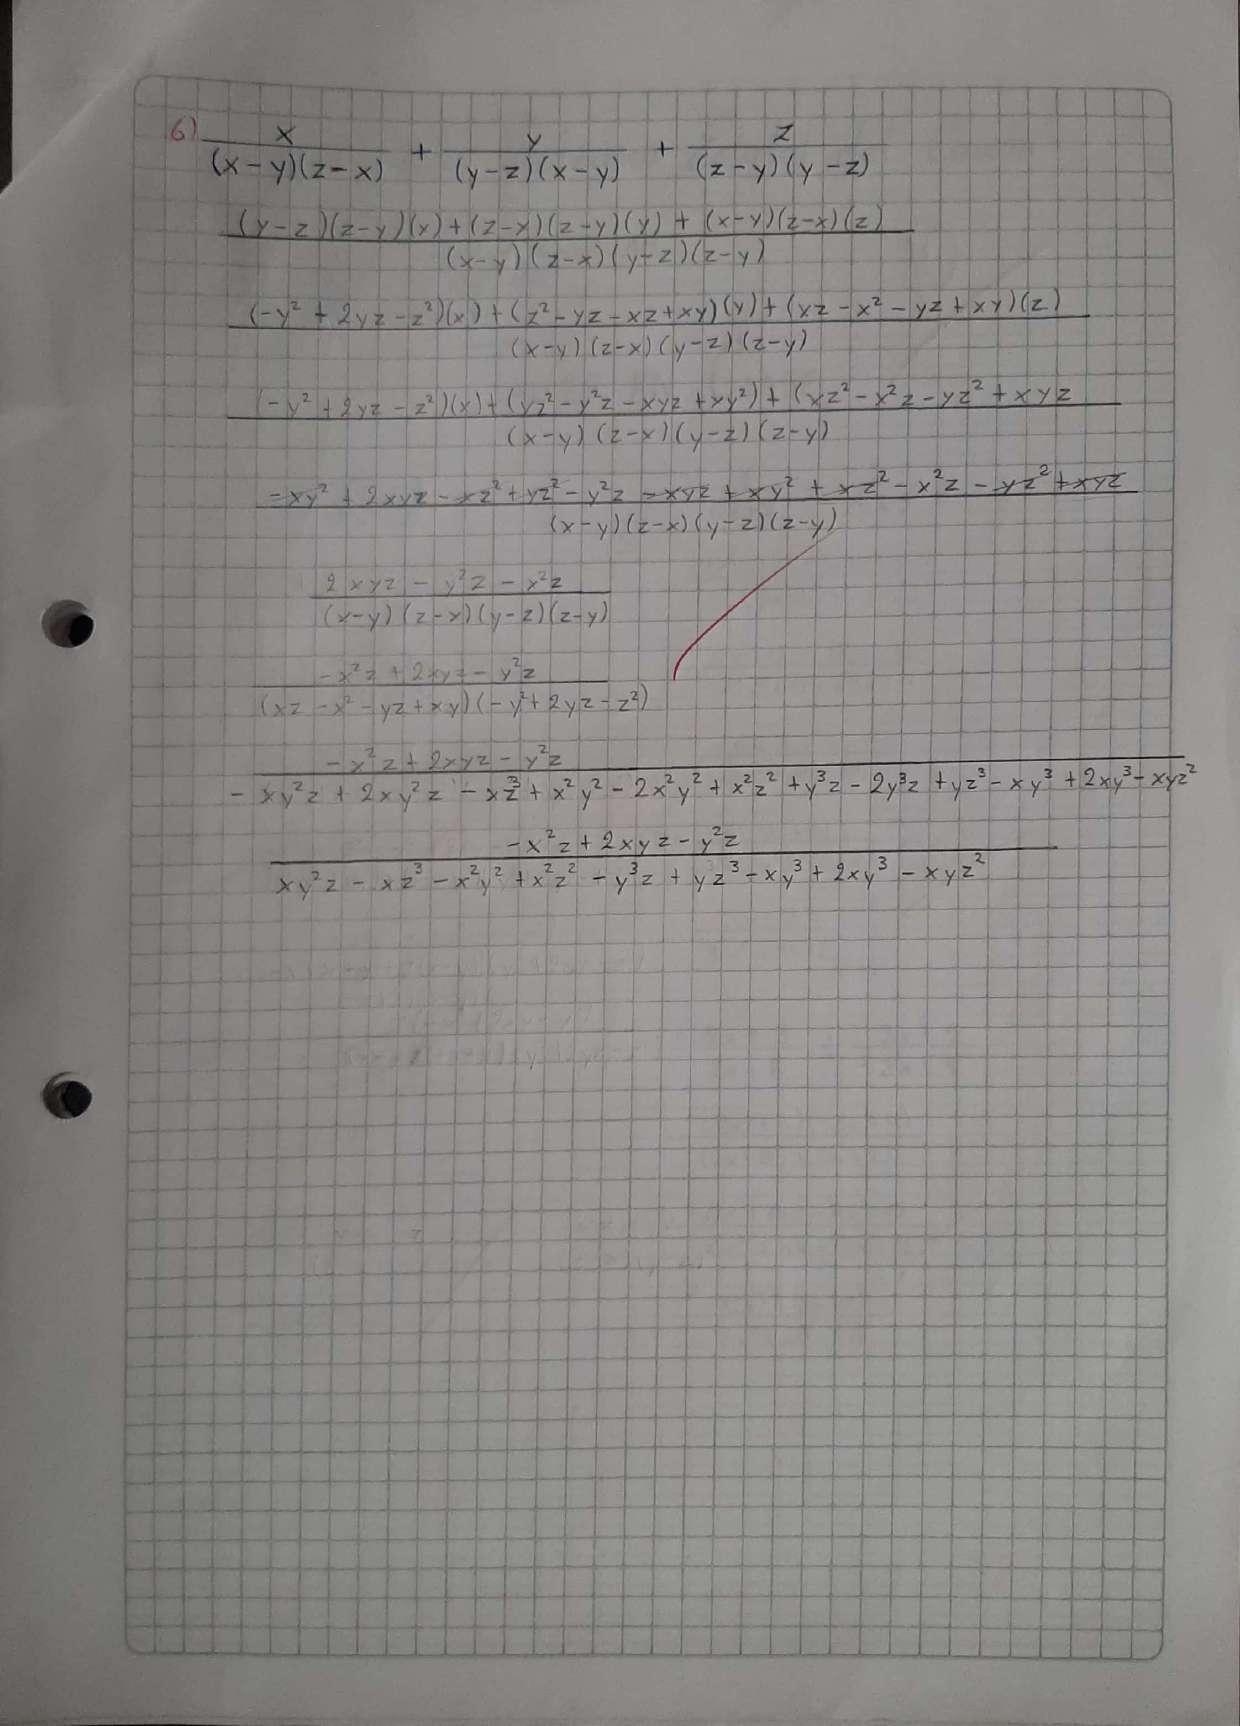 6) x/((x-y)(z-x)) + y/((y-z)(x-y)) + z/((z-y)(y-z))
((y-z)(z-y)(x)+(z-x)(z-y)(y)+(x-y)(z-x)(z))/((x-y)(z-x)(y-z)(z-y))
((-y²+2yz-z²)(x)+(z²-yz-xz+xy)(y)+(xz-x²-yz+xy)(z))/((x-y)(z-x)(y-z)(z-y))
(-y²+2yz-z²)(x)+(yz²-y²z-xyz+xy²)+(xz²-x²z-yz²+xyz
(x-y)(z-x)(y-z)(z-y)
-xy²+2xyz-xz²+yz²-y²z-xyz+xy²+xz²-x²z-yz²+xyz
(x-y)(z-x)(y-z)(z-y)
2xyz-y²z-x²z
(x-y)(z-x)(y-z)(z-y)
-x²z+2xyz-y²z
(xz-x²-yz+xy)(-y²+2yz-z²)
-x²z+2xyz-y²z
-xy²z+2xy²z-xz³+x²y²-2x²y²+x²z²+y³z-2y³z+yz³-xy³+2xy³-xyz²
-x²z+2xyz-y²z
xy²z-xz³-x²y²+x²z²-y³z+yz³-xy³+2xy³-xyz²